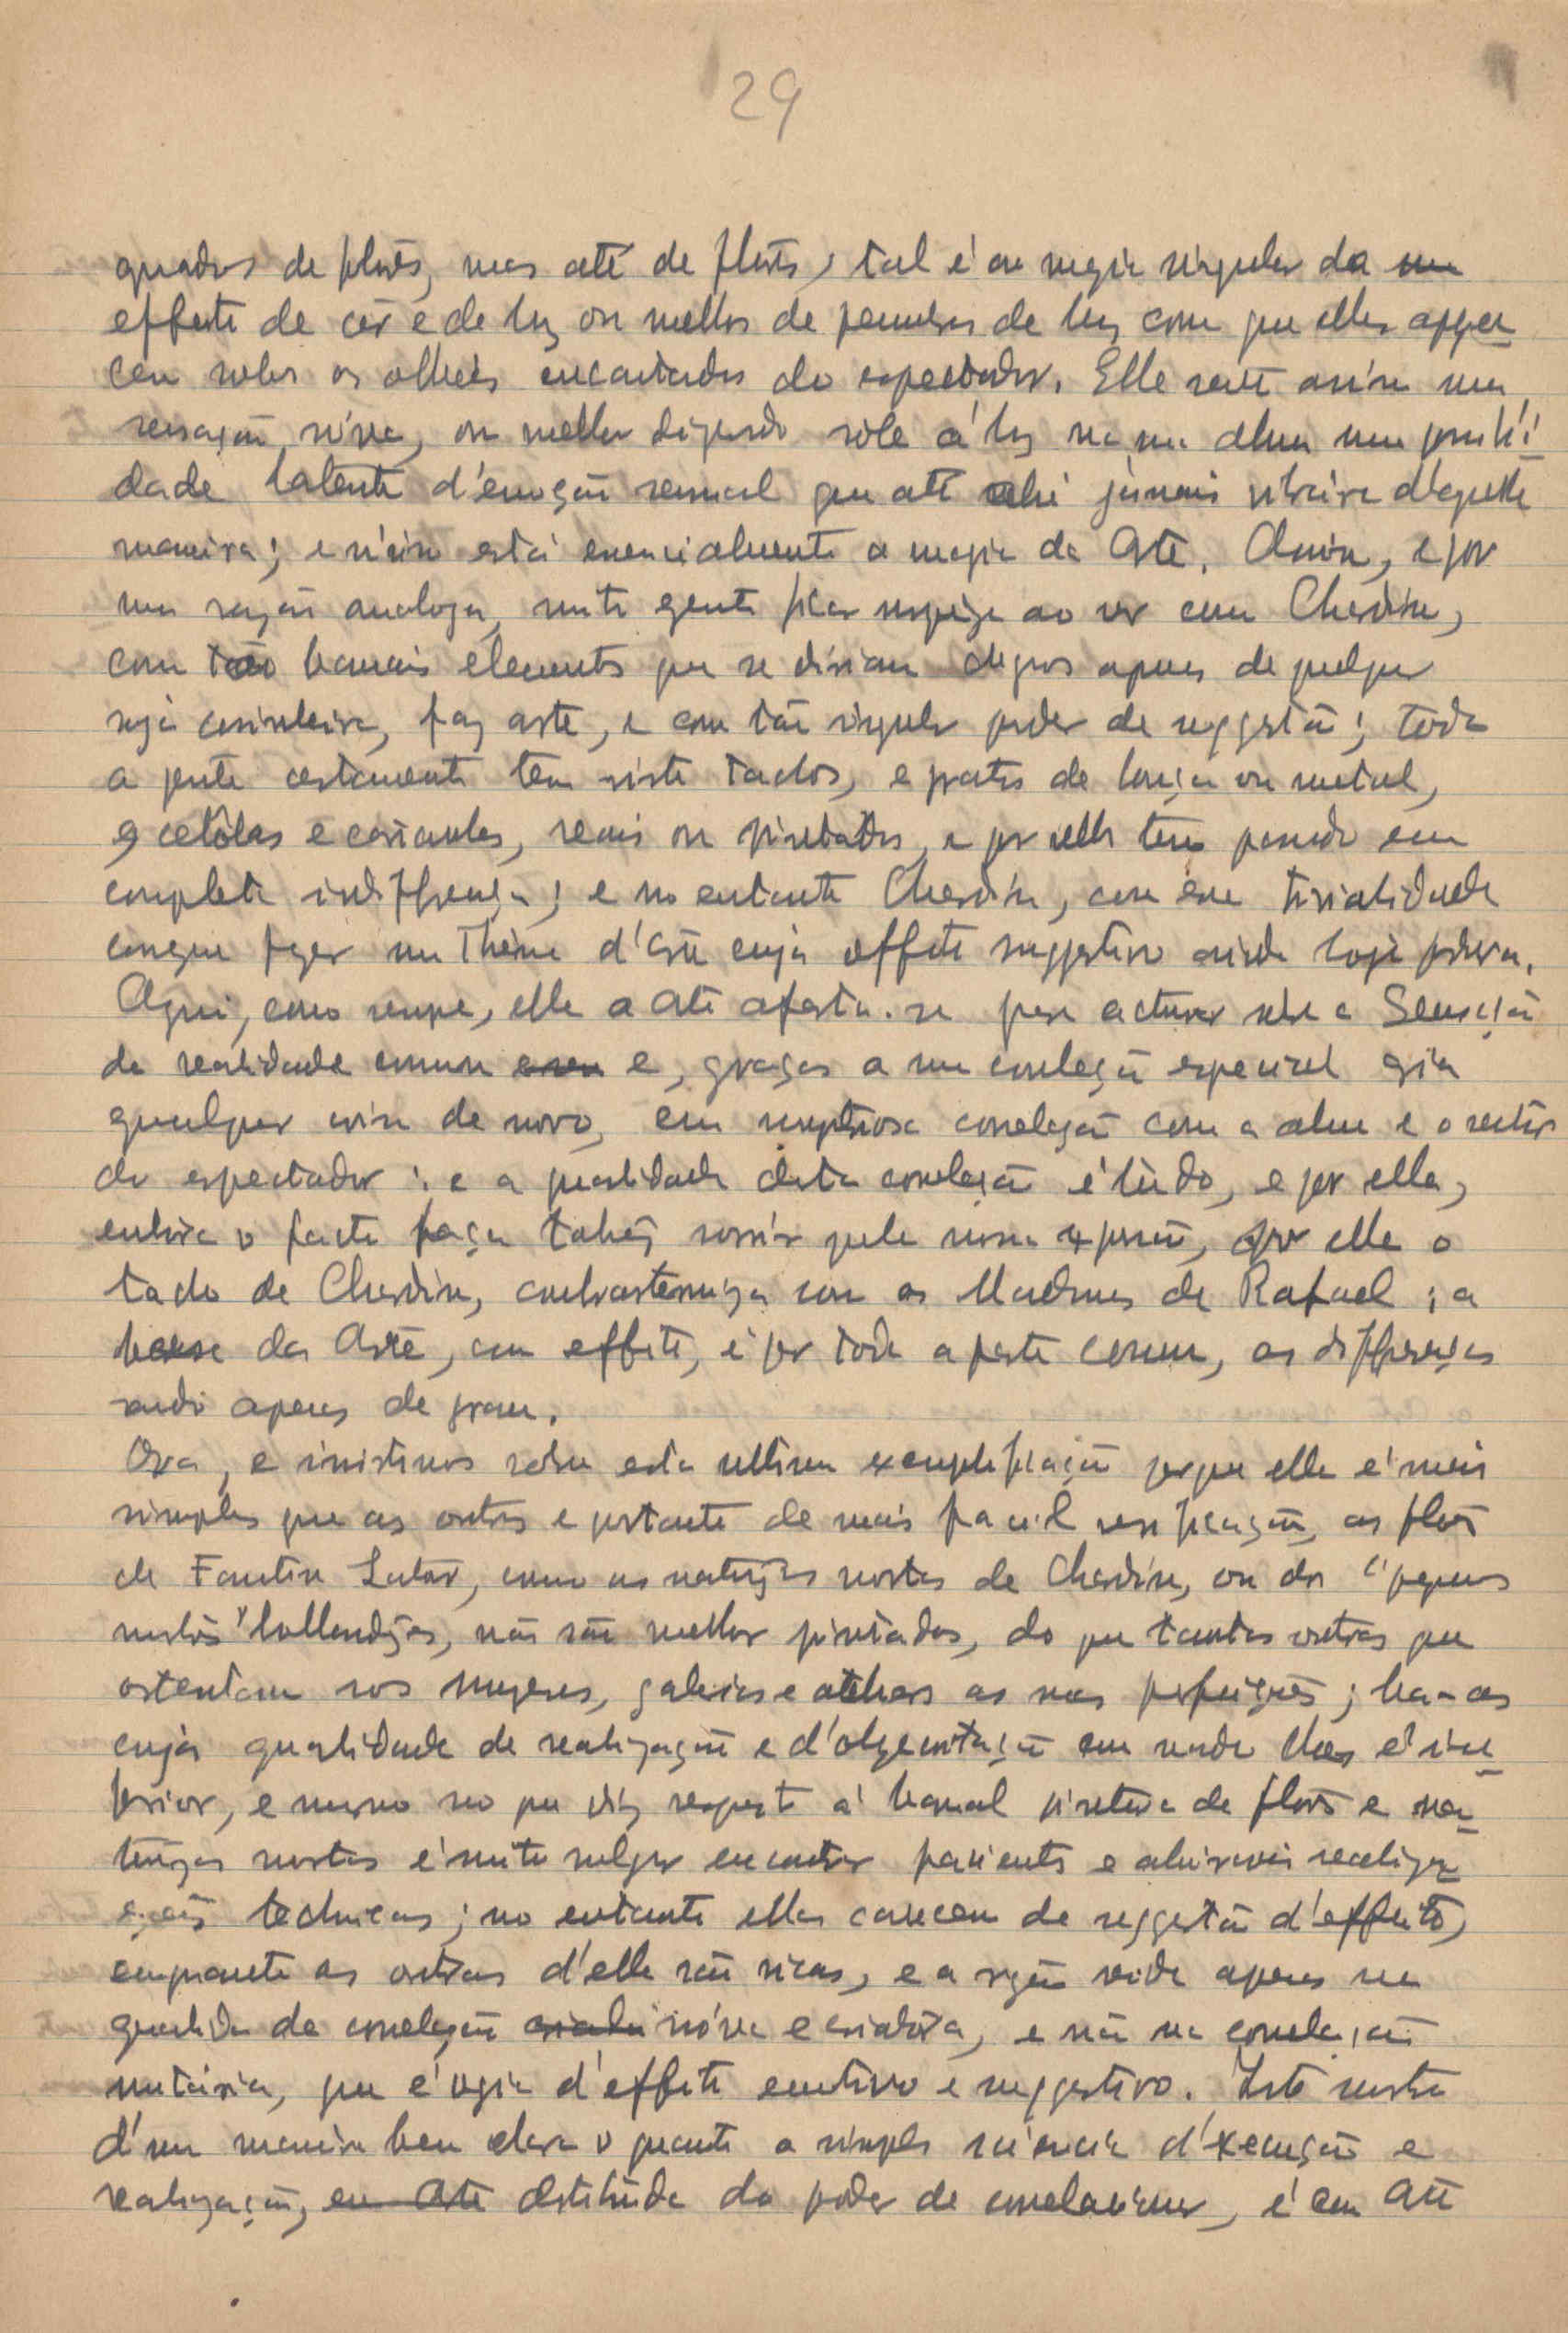 29
quadros de flôres, mas até de flores, tal é a magia singular da
effeito de côr e de luz ou melhor de penumbra de luz com que ellas appare-
cem sobre os olhos encantados do espectador. Elle sente assim uma
sensação nóva, ou melhor dizendo sóbe á luz na sua alma uma possibili-
dade latente d'emoção sensual que até alli jamais vibrára d'aquella
maneira; e n'isso está essencialmente a magia da Arte. Assim, e por
uma razão analoga, muita gente fica surpreza ao ver como Chardin,
com tão banaes elementos que se diriam dignos apenas de qualquer
suja cosinheira, faz arte, e com tão singular poder de suggestão; toda
a gente certamente tem visto tachos, e pratos de louça ou metal,
e cebôlas e cenouras, reaes ou pintadas, e por ellas tem passado em
completa indifferença; e no entanto Chardin, com essa trivialidade
consegue fazer um thema d'arte cujo effeito suggestivo ainda hoje perdura.
Aqui, como sempre, elle a Arte afasta-se para actuar sobre a Sensação
da realidade comum e, graças a uma correlação especial cria
qualquer coisa de novo, em mysteriosa correlação com a alma e o sentir
do espectador: e a qualidade desta correlação é tudo, e por ella,
embora o facto faça talvez sorrir pela nossa expressão, por ella o
tacho de Chardin, confraterniza com as Madonas de Rafael; a
base da Arte, com effeito, é por toda a parte comum, as differenças
sendo apenas de grau.
Ora, e insistimos sobre esta ultima exemplificação porque ella é mais
simples que as outras e portanto de mais facil verificação, as flores
de Fantin Latour, como as naturezas mortas de Chardin, ou dos "pequenos
mestres" hollandezes, não são melhor pintadas, do que tantas outras que
ostentam nos museus, galerias e ateliers as suas perfeições; ha-as
cuja qualidade de realização e d'objectivação em nada lhes é infe-
rior, e mesmo no que diz respeito á banal pintura de flores e na-
turezas mortas é muito vulgar encontrar pacientes e admiraveis realiza-
ções technicas; no entanto ellas carecem de suggestão d'effeito,
emquanto as outras d'elle são ricas, e a razão reside apenas na
qualidade da correlação nóva e criadora, e não na correlação
unitária, que é vazia d'effeito emotivo e suggestivo. Isto mostra
d'uma maneira bem clara o quanto a simples sciencia d'execução e
realização, destituida do poder de correlacionar, é em Arte